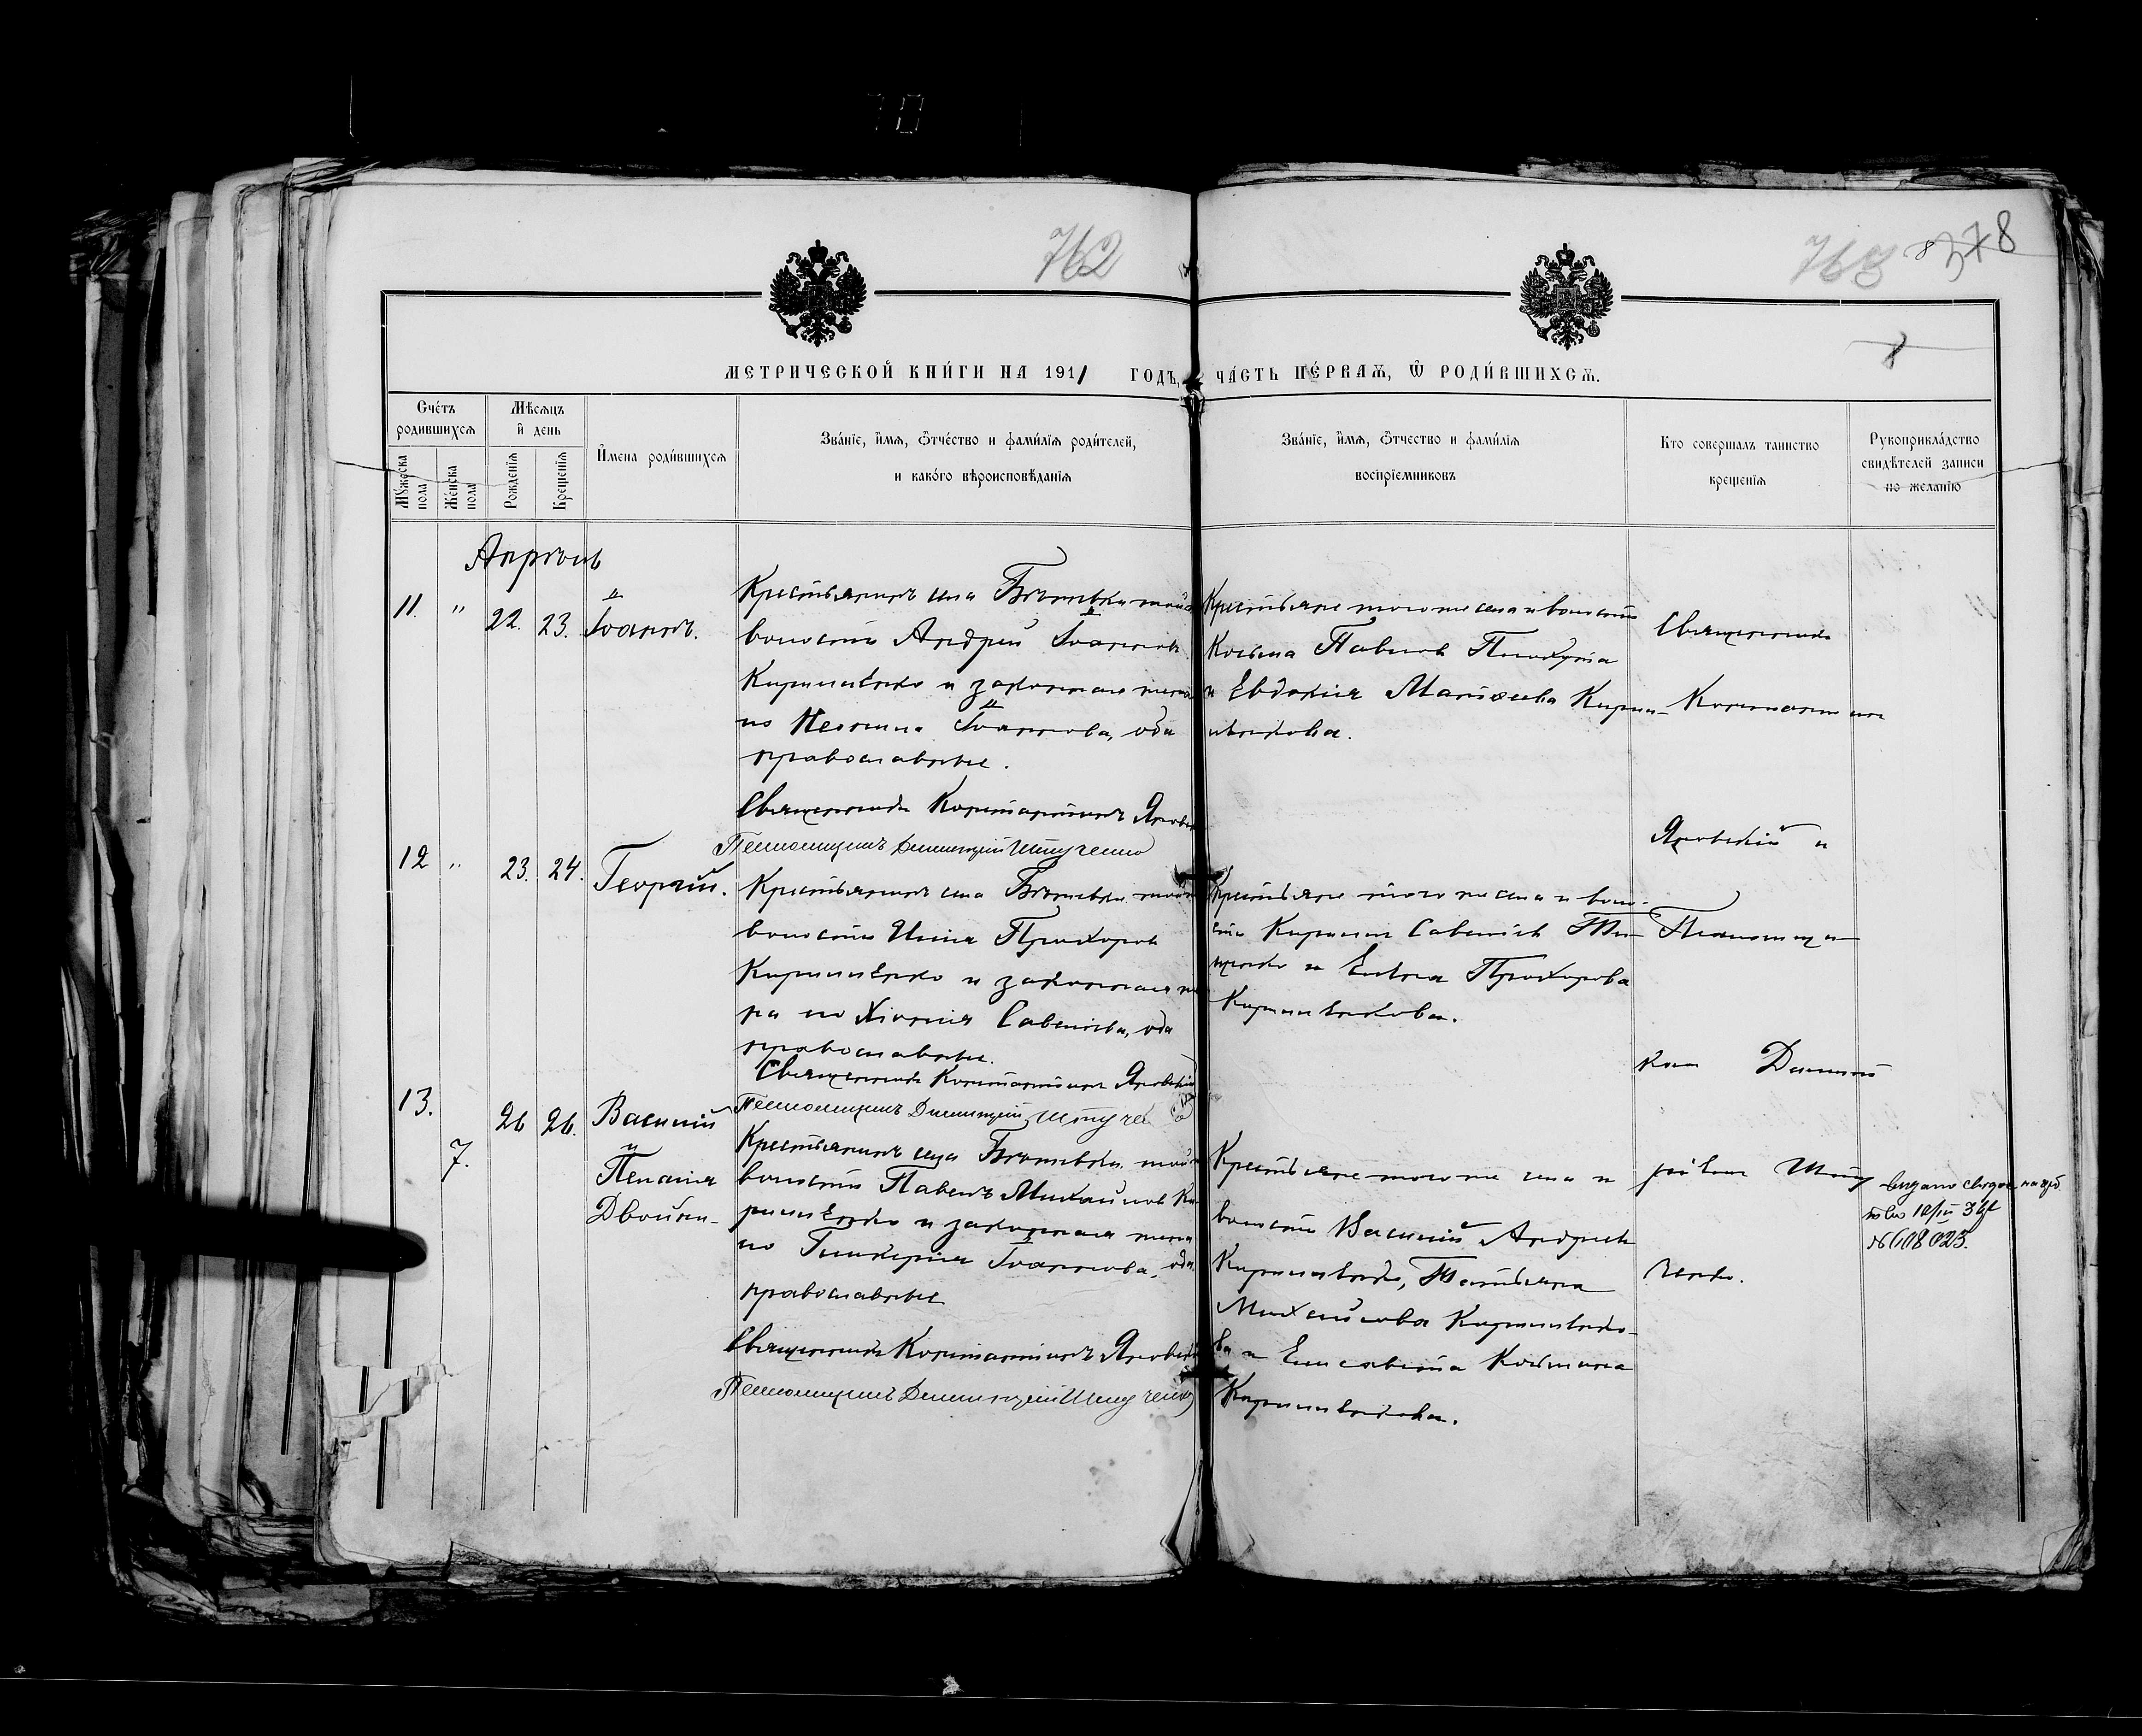 762
768
378
МЕТРИЧЕСКОЙ КНИ́ГИ НА 1911 ГОДЪ, ЧА́СТЬ ПЕ́РВАѦ, Ѽ РОДИ́ВШИХСѦ.
Сче́тъ родившихсѧ
Мѣсѧцъ и̂ день
И҆мена роди́вшихсѧ
Зва́нїе, и҆́мѧ, ѻ҆́тче́ство и фами́лїѧ роди́телей,
и како́го вѣроисповѣ́данїѧ
Зва́нїе, и҆́мѧ, ѻ҆́тчество и фами́лїѧ
воспрїе́мниковъ
Кто совершалъ таинство
крещенїѧ
Рукоприкла́дство
свидѣтелей записи
по желанїю
Мꙋжеска пола
Же́нска пола
Рожденїѧ
Крещенїѧ
Апрѣль
11. " 22. 23. Іоаннъ.
Крестьянинъ села Бѣтевки той
волости Андрей Іоанновъ
Кириленко и законная жена
его Неонила Іоаннова, оба
православные.
Священникъ Константинъ Яновск
Псаломщикъ Димитрій Штученко
Крестьяне того же села и волости
Косьма Павловъ Плохута
и Евдокія Матѳеева Кири-
ленкова.
Священникъ
Константинъ
Яновскій и
Псаломщи
къ Димит
рій Шту
ченко.
12 " 23. 24. Георгій.
Крестьянинъ села Бѣтевки той
волости Илія Прохоровъ
Кириленко и законная же
на его Хіонія Савеліева, оба
православные.
Священникъ Константинъ Яновскій
Псаломщикъ Димитрій Штучен
Крестьяне того же села и воло-
сти Кириллъ Савеліевъ Ти-
щенко и Елена Прохорова
Кириленкова.
13. 7. 26 26. Василій
и
Пелагія
Двойни-
Крестьянинъ села Бѣтевки той
волости Павелъ Михаиловъ Ки
риленко и законная жена
его Гликерія Іоаннова, оба
православные
Священникъ Константинъ Яновскій
Псаломщикъ Димитрій Штученко
Крестьяне того же села и
волости Василій Андреевъ
Кириленко, Татьяна
Михаилова Кириленко-
ва и Елисавета Косьмина
Кириленкова.
№ 608023.